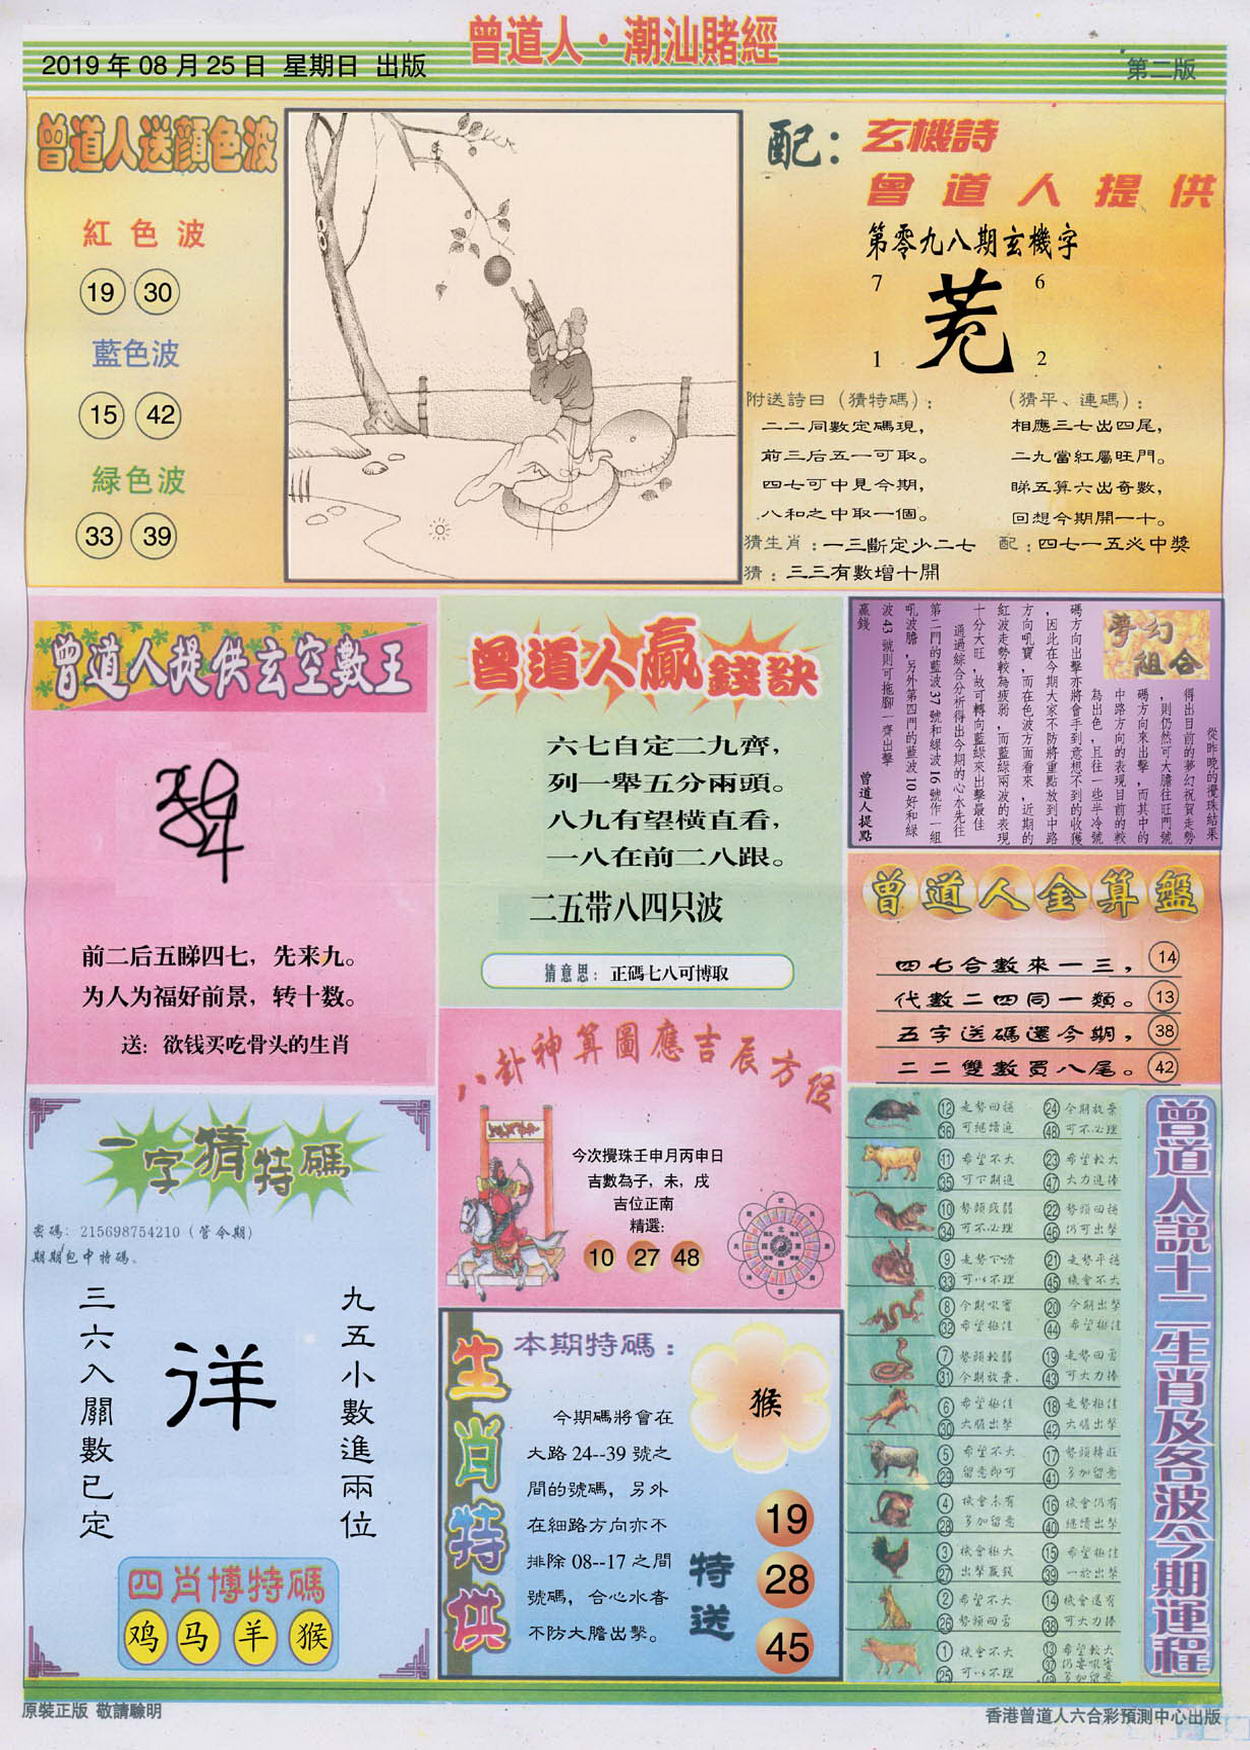 曾道人·潮汕賭經
2019年08月25日 星期日 出版
第二版
曾道人送顔色波
紅色波
19 30
藍色波
15 42
緑色波
33 39
配：玄機詩
曾道人提供
第零九八期玄機字
7 6
1 2
附送詩曰（猜特碼）：
二二同數定碼現，
前三后五一可取。
四七可中見今期，
八和之中取一個。
（猜平、連碼）：
相應三七出四尾，
二九當紅屬旺門。
睇五算六出奇數，
回想今期開一十。
猜生肖：一三斷定少二七 配：四七一五必中獎
猜：三三有數增十開
曾道人提供玄空數王
前二后五睇四七，先来九。
为人为福好前景，转十数。
送：欲钱买吃骨头的生肖
曾道人贏錢訣
六七自定二九齊，
列一舉五分兩頭。
八九有望橫直看，
一八在前二八跟。
二五带八四只波
猜意思：正碼七八可博取
夢幻組合
從昨晚的攪珠結果
得出目前的夢幻祝賀走勢
，則仍然可大膽往旺門號
碼方向來出擊，而其中的
中路方向的表現目前的較
為出色，且往一些半冷號
碼方向出擊亦將會手到意想不到的收獲
，因此在今期大家不防將重點放到中路
方向吼寶，而在色波方面看來，近期的
紅波走勢較為疲弱，而藍綠兩波的表現
十分大旺，故可轉向藍綠來出擊最佳
通過綜合分析得出今期的心水先往
第二門的藍波37號和綠波16號作一組
吼波膽，另外第四門的藍波10好和綠
波43號則可拖腳一齊出擊
贏錢 曾道人提點
曾道人金算盤
四七合數來一三， 14
代數二四同一類。 13
五字送碼還今期， 38
二二雙數買八尾。 42
八卦神算圖應吉辰方位
今次攪珠壬申月丙申日
吉數為子，未，戌
吉位正南
精選：
10 27 48
一字猜特碼
密碼：215698754210（管今期）
期期包中特碼。
三六入關數已定
祥
九五小數進兩位
四肖博特碼
鸡 马 羊 猴
生肖特供
本期特碼：
猴
今期碼將會在
大路24--39號之
間的號碼，另外
在細路方向亦不
排除08--17之間
號碼，合心水者
不防大膽出擊。
特送
19
28
45
曾道人説十二生肖及各波今期運程
12 走勢回穩 24 今期放棄
36 可繼續追 48 可不必理
11 希望不大 23 希望較大
35 可下期追 47 大力追捧
10 勢頭疲弱 22 勢頭回穩
34 可不必理 46 仍可出擊
9 走勢下滑 21 走勢平穩
33 可以不理 45 機會不大
8 今期吼寶 20 今期出擊
32 希望極佳 44 希望極佳
7 勢頭較弱 19 走勢回雲
31 今期放棄. 43 可大力捧
6 希望極佳 18 走勢極佳
30 大膽出擊 42 大膽出擊
5 希望不大 17 勢頭轉旺
29 留意即可 41 多加留意
4 機會未有 16 機會仍有
28 多加留意 40 繼續出擊
3 機會極大 15 希望極佳
27 出擊贏錢 39 一於出擊
2 希望不大 14 機會還有
26 勢頭回雲 38 可大力捧
1 機會不大 13 希望較大
25 可以不理 37 仍要吼寶
多加留意
原裝正版 敬請驗明
香港曾道人六合彩預測中心出版